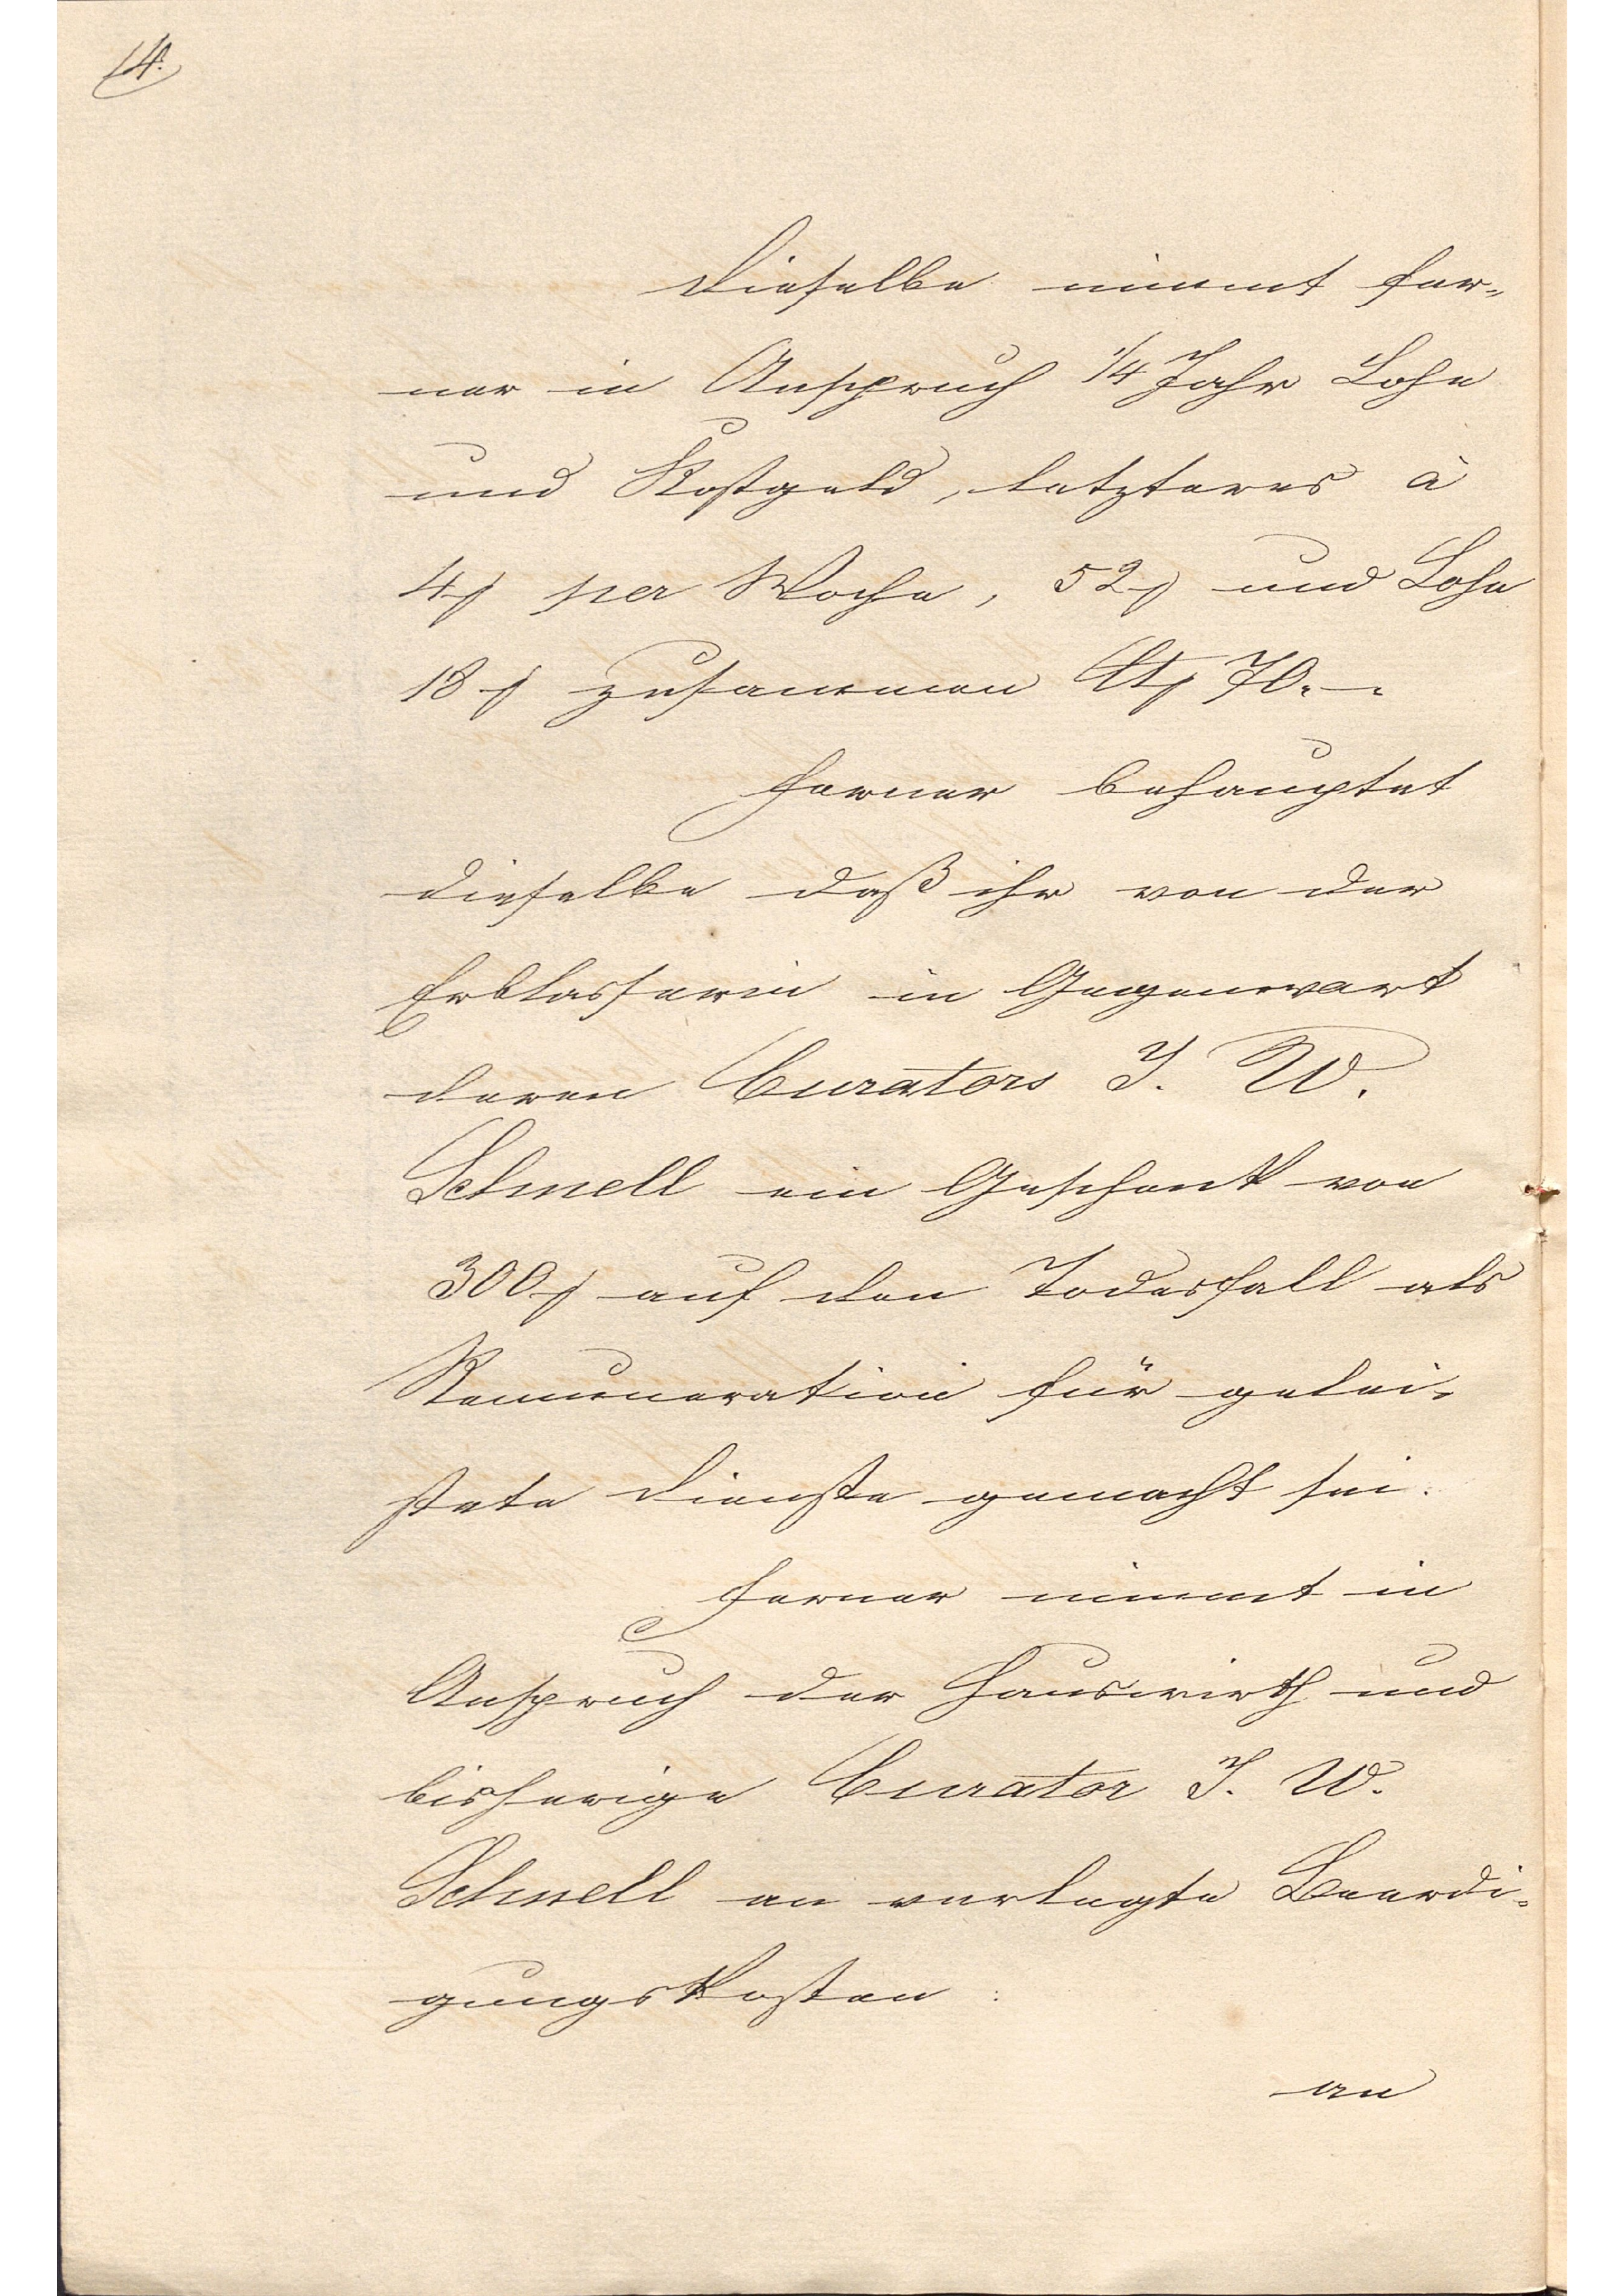 14.
Dieselbe nimmt fer-
ner in Anspruch 1/4 Jahr Lohn
und Kostgeld, letzteres à
4 ƒ per Woche, 52 ƒ und Lohn
18 ƒ zusammen Ct ƒ 70.-.
Ferner behauptet
dieselbe daß ihr von der
Erblasserin in Gegenwart
deren Curators J. W.
Schnell ein Geschenk von
300 ƒ auf den Todesfall als
Remuneration für gelei-
stete Dienste gemacht sei.
Ferner nimmt in
Anspruch der Hauswirth und
bisherige Curator J. W.
Schnell an verlegte Beerdi-
gungskosten:
an